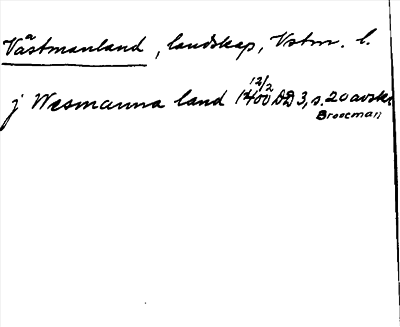 Västmanland, landskap, Vstm. l.
j Wesmanna land 12/2 1400 DD 3, s. 20 avskr.
Broocman